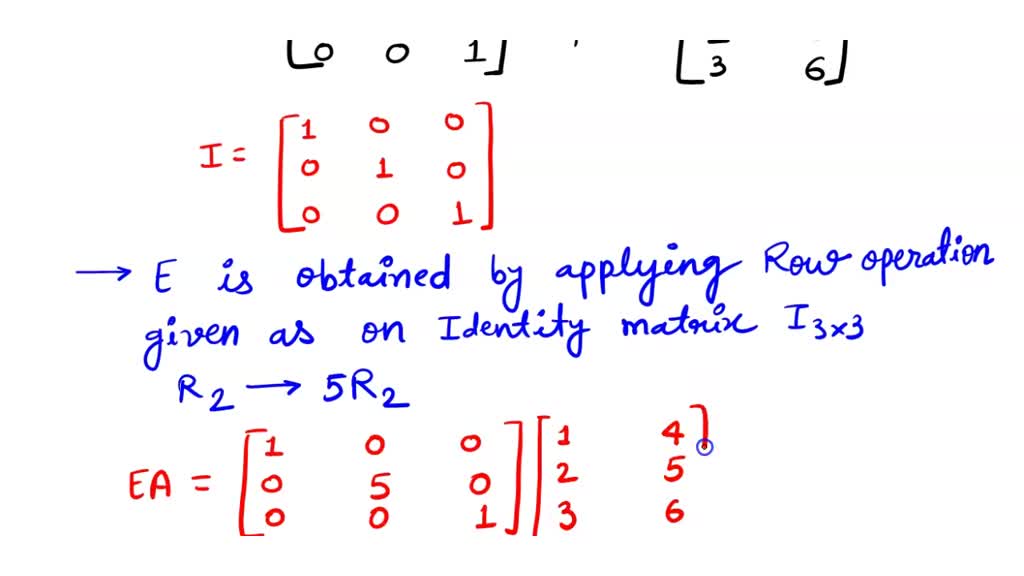 [0 0 1] , [3 6]
I = [1 0 0
0 1 0
0 0 1]
→ E is obtained by applying Row operation
given as on Identity matrix I3×3
R2 → 5R2
EA = [1 0 0] [1 4]
0 5 0 2 5
0 0 1] 3 6